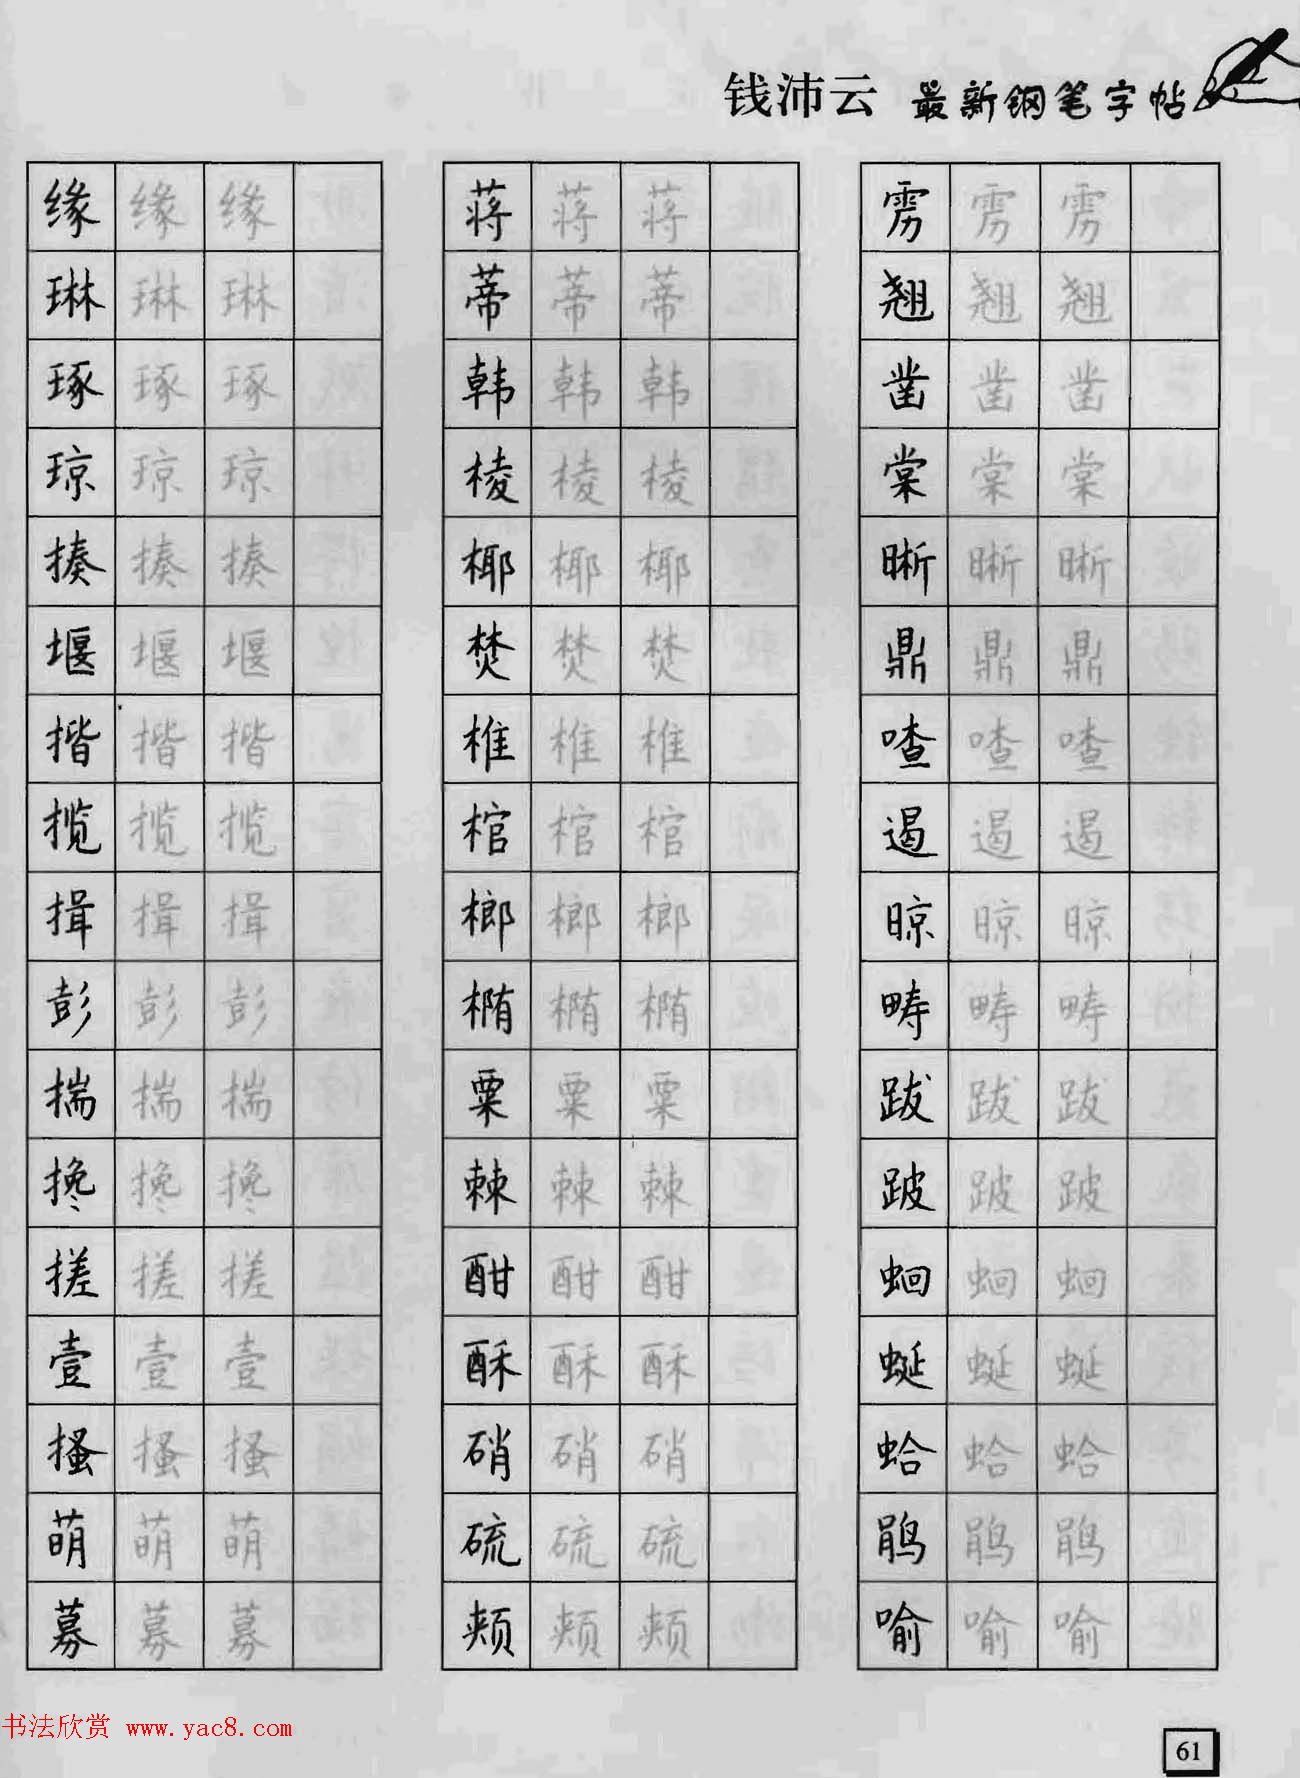 钱沛云 最新钢笔字帖
缘 缘 缘 蒋 蒋 蒋 雳 雳 雳
琳 琳 琳 蒂 蒂 蒂 翘 翘 翘
琢 琢 琢 韩 韩 韩 凿 凿 凿
琼 琼 琼 棱 棱 棱 棠 棠 棠
揍 揍 揍 椰 椰 椰 晰 晰 晰
堰 堰 堰 焚 焚 焚 鼎 鼎 鼎
揩 揩 揩 椎 椎 椎 喳 喳 喳
揽 揽 揽 棺 棺 棺 遏 遏 遏
揖 揖 揖 榔 榔 榔 晾 晾 晾
彭 彭 彭 椭 椭 椭 畴 畴 畴
揣 揣 揣 粟 粟 粟 跋 跋 跋
搀 搀 搀 棘 棘 棘 跛 跛 跛
搓 搓 搓 酣 酣 酣 蛔 蛔 蛔
壹 壹 壹 酥 酥 酥 蜒 蜒 蜒
搔 搔 搔 硝 硝 硝 蛤 蛤 蛤
萌 萌 萌 硫 硫 硫 鹃 鹃 鹃
募 募 募 颊 颊 颊 喻 喻 喻
书法欣赏 www.yac8.com
61